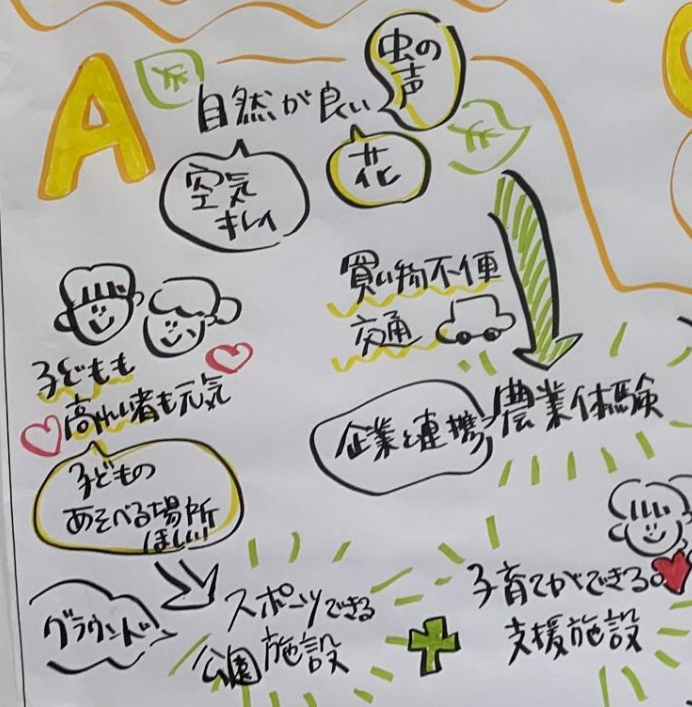 A
自然が良い
虫の
声
花
空気
キレイ
買い物不便
交通
子どもも
高れい者も元気
企業と連携
農業体験
子どもの
あそべる場所
ほしい
グラウンド
スポーツできる
公園施設
子育てができる
支援施設